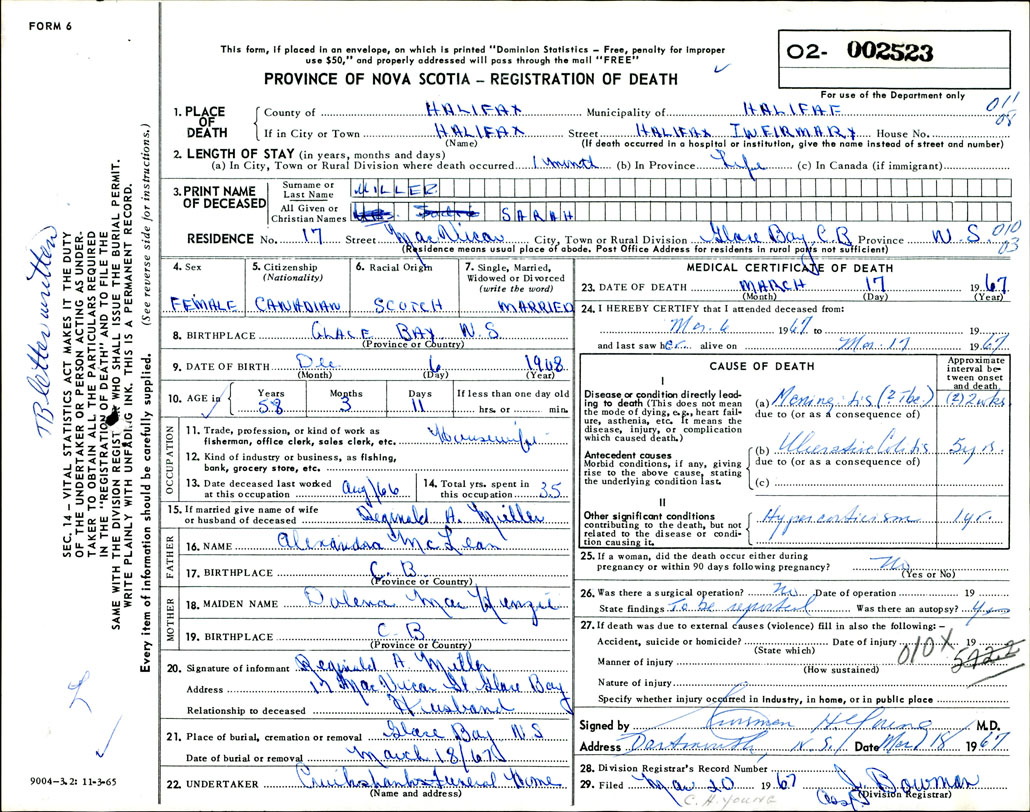 FORM 6
This form, if placed in an envelope, on which is printed "Dominion Statistics – Free, penalty for improper
use $50," and properly addressed will pass through the mail "FREE"
PROVINCE OF NOVA SCOTIA – REGISTRATION OF DEATH
02- 002523
For use of the Department only
011
08
1. PLACE OF DEATH
County of HALIFAX Municipality of HALIFAX
If in City or Town HALIFAX Street HALIFAX INFIRMARY House No.
(Name) (If death occurred in a hospital or institution, give the name instead of street and number)
2. LENGTH OF STAY (in years, months and days)
(a) In City, Town or Rural Division where death occurred 1 month (b) In Province Life (c) In Canada (if immigrant)
3. PRINT NAME OF DECEASED
Surname or Last Name MILLER
All Given or Christian Names SARAH
RESIDENCE No. 17 Street MacVicar City, Town or Rural Division Glace Bay, C.B Province N.S.
010
03
(Residence means usual place of abode. Post Office Address for residents in rural parts not sufficient)
4. Sex FEMALE
5. Citizenship (Nationality) CANADIAN
6. Racial Origin SCOTCH
7. Single, Married, Widowed or Divorced (write the word) MARRIED
8. BIRTHPLACE GLACE BAY N.S
(Province or Country)
9. DATE OF BIRTH Dec 6 1908
(Month) (Day) (Year)
10. AGE in Years 58 Months 3 Days 11 If less than one day old hrs. or min.
OCCUPATION
11. Trade, profession, or kind of work as fisherman, office clerk, sales clerk, etc. Housewife
12. Kind of industry or business, as fishing, bank, grocery store, etc.
13. Date deceased last worked at this occupation Aug/66
14. Total yrs. spent in this occupation 35
15. If married give name of wife or husband of deceased Reginald A. Miller
FATHER
16. NAME Alexandra McLean
17. BIRTHPLACE C.B.
(Province or Country)
MOTHER
18. MAIDEN NAME Dolena MacKenzie
19. BIRTHPLACE C B
(Province or Country)
20. Signature of informant Reginald A Miller
Address 17 MacVicar St Glace Bay
Relationship to deceased Husband
21. Place of burial, cremation or removal Glace Bay NS
Date of burial or removal March 18/67
22. UNDERTAKER Cruikshanks Funeral Home
(Name and address)
MEDICAL CERTIFICATE OF DEATH
23. DATE OF DEATH MARCH 17 1967
(Month) (Day) (Year)
24. I HEREBY CERTIFY that I attended deceased from:
Mar. 6 1967 to 19
and last saw her alive on Mar. 17 1967
CAUSE OF DEATH
Approximate interval between onset and death
I
Disease or condition directly leading to death (This does not mean the mode of dying, e.g., heart failure, asthenia, etc. It means the disease, injury, or complication which caused death.)
(a) Meningitis (? Tbc) (?) 2 wks
due to (or as a consequence of)
Antecedent causes
Morbid conditions, if any, giving rise to the above cause, stating the underlying condition last.
(b) Ulcerative Colitis 5 yrs.
due to (or as a consequence of)
(c)
II
Other significant conditions contributing to the death, but not related to the disease or condition causing it.
Hypercorticism 1 yr.
25. If a woman, did the death occur either during pregnancy or within 90 days following pregnancy? No
(Yes or No)
26. Was there a surgical operation? No Date of operation 19
State findings To be reported Was there an autopsy? Yes
27. If death was due to external causes (violence) fill in also the following:–
Accident, suicide or homicide? Date of injury 19
(State which)
010X
Manner of injury
(How sustained)
Nature of injury
Specify whether injury occurred in industry, in home, or in public place
Signed by H Young M.D.
Address Dartmouth, N.S. Date Mar 18 1967
28. Division Registrar's Record Number
29. Filed Mar 20 1967 J. Bowman
C. H. YOUNG
(Division Registrar)
TB letter written
SEC. 14 – VITAL STATISTICS ACT MAKES IT THE DUTY
OF THE UNDERTAKER OR PERSON ACTING AS UNDER-
TAKER TO OBTAIN ALL THE PARTICULARS REQUIRED
IN THE "REGISTRATION OF DEATH" AND TO FILE THE
SAME WITH THE DIVISION REGISTRAR WHO SHALL ISSUE THE BURIAL PERMIT.
WRITE PLAINLY WITH UNFADING INK. THIS IS A PERMANENT RECORD.
Every item of information should be carefully supplied. (See reverse side for instructions.)
9004-3.2: 11-3-65